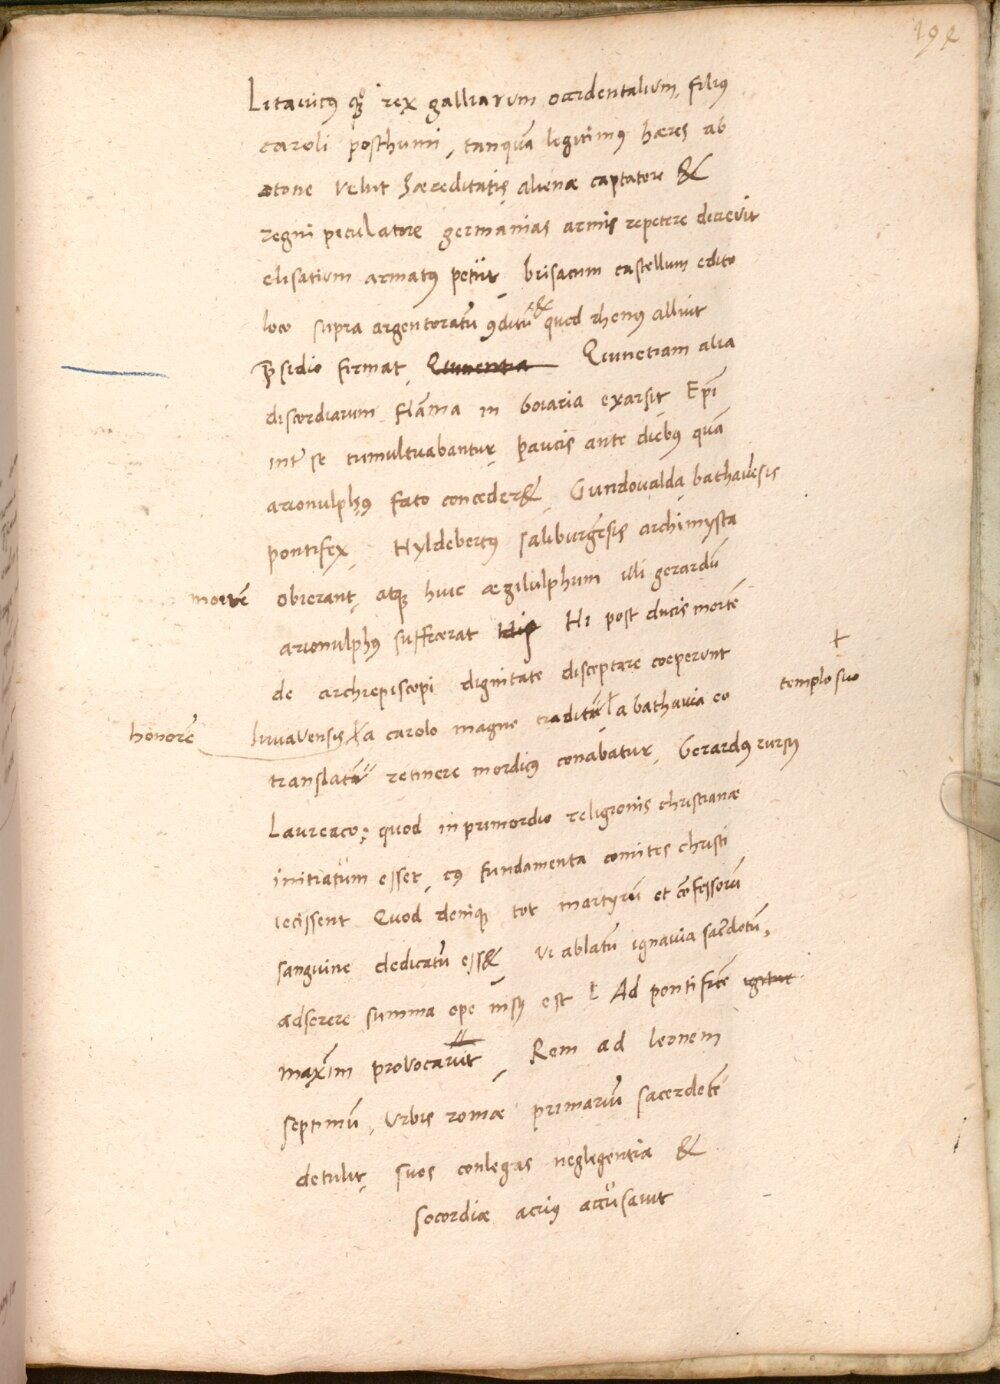 192
Litauicꝰ qꝫ rex galliarum occidentalium, filiꝰ
caroli posthumi, tanquã legitimꝰ hæres ab
otone velut hæreditatis alienæ captatore &
regni peculatore germanias armis repetere decrevit
elisatium armatꝰ petiit, brisacum castellum edito
loco supra argentoratũ ꝯditũ & quod rhenꝰ alluit
p̃sidio firmat, Quinetia Quinetiam alia
discordiarum flãma in boiaria exarsit Ep̃i
int̃ se tumultuabantur paucis ante diebꝰ quã
arionulphꝰ fato conceder&, Gundoualda bathauẽsis
pontifex, Hyldebertꝰ saliburgẽsis archimysta
mortẽ obierant, atqꝫ huic ægilulphum illi gerardũ
arionulphꝰ suffecerat Hi post ducis mortẽ
de archiepiscopi dignitate disceptare coeperunt
+
templo suo
honorẽ Iuuavensis a carolo magno traditũ a bathauia eo
translatũ retinere mordicꝰ conabatur, Gerardꝰ rursꝰ
Laureaco; quod in primordio religionis christianæ
initiatum esset, cꝰ fundamenta comites christi
iecissent Quod deniqꝫ tot martyrũ et cõfessorũ
sanguine dedicatũ ess& vi ablatũ ignavia sacerdotũ,
adserere summa ope nisꝰ est Ad pontificẽ igitur
maxĩm provocavit, Rem ad leonem
septimũ, vrbis romæ primariũ sacerdotẽ
detulit, suos conlegas negligentia &
socordiæ acriꝰ accusavit